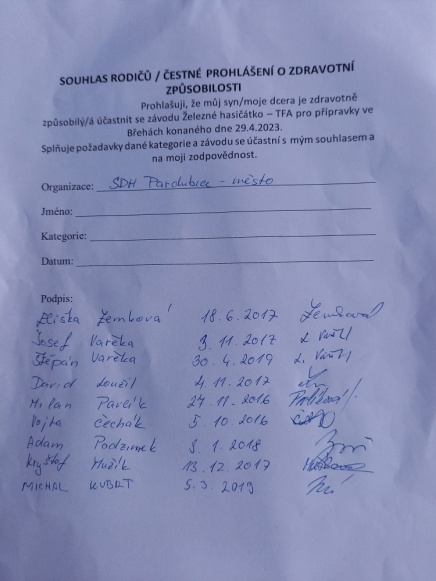 SOUHLAS RODIČŮ / ČESTNÉ PROHLÁŠENÍ O ZDRAVOTNÍ
ZPŮSOBILOSTI
Prohlašuji, že můj syn/moje dcera je zdravotně
způsobilý/á účastnit se závodu Železné hasičátko – TFA pro přípravky ve
Břehách konaného dne 29.4.2023.
Splňuje požadavky dané kategorie a závodu se účastní s mým souhlasem a
na moji zodpovědnost.
Organizace: SDH Pardubice - město
Jméno:
Kategorie:
Datum:
Podpis:
Eliška Zemková 18.6.2017
Josef Vařeka 3.11.2017
Štěpán Vařeka 30.4.2019
David 4.11.2017
Milan Pavlík 27.11.2016
Vojta Čechák 5.10.2016
Adam Podzimek 5.1.2018
Kryštof Mužík 13.12.2017
MICHAL KUBÁT 5.3.2019